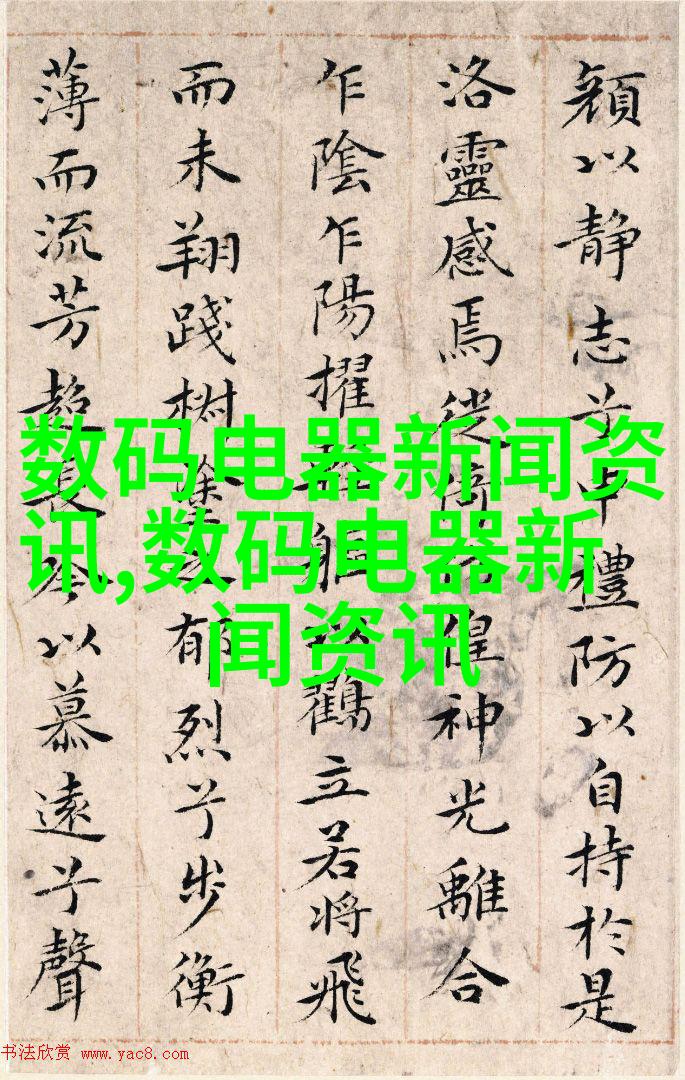 顔以静志兮申禮防以自持於是
洛靈感焉徙倚偟神光離合
乍陰乍陽擢軀以鶴立若将飛
而未翔踐椒塗之郁烈兮步衡
薄而流芳超長吟以慕遠兮聲
数码电器新闻资
讯,数码电器新
闻资讯
书法欣赏 www.yac8.com